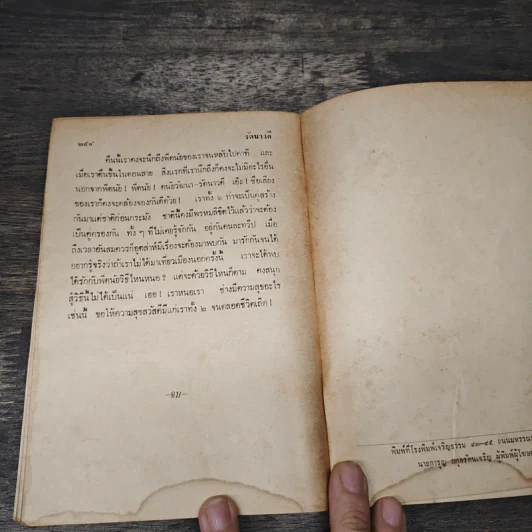 ๒๕๔ รัตนาวดี
คืนนี้เราคงจะนึกถึงพี่ดนัยของเราจนหลับไปคาที่ และ
เมื่อเราตื่นขึ้นในตอนสาย สิ่งแรกที่เรานึกถึงก็คงจะไม่มีอะไรอื่น
นอกจากพี่ดนัย! พี่ดนัย! ดนัยวัฒนา-รัตนาวดี เอ๊ะ! ชื่อเสียง
ของเราก็คงจะคล้องจองกันดีด้วย! เราทั้ง ๒ ท่าจะเป็นคู่สร้าง
กันมาแต่ชาติก่อนกระมัง ชาตินี้คงมีพรหมลิขิตไว้แล้วว่าจะต้อง
เป็นคู่ครองกัน ทั้ง ๆ ที่ไม่เคยรู้จักกัน อยู่กันคนละทวีป เมื่อ
ถึงเวลาอันสมควรก็อุตส่าห์มีเรื่องจะต้องมาพบกัน มารักกันจนได้
อยากรู้จริงว่าถ้าเราไม่ได้มาเที่ยวเมืองนอกครั้งนี้ เราจะได้พบ
ได้รักกับพี่ดนัยวิธีไหนหนอ? แต่จะด้วยวิธีไหนก็ตาม คงสนุก
สู้วิธีนี้ไม่ได้เป็นแน่ เออ! เราหนอเรา ช่างมีความสุขอะไร
เช่นนี้ ขอให้ความสุขสวัสดีมีแก่เราทั้ง ๒ จนตลอดชีวิตเถิด!
—จบ—
พิมพ์ที่โรงพิมพ์เจริญธรรม ๙๓-๙๕ ถนน
นายการุญ สกุลรัตนเจริญ ผู้พิมพ์ผู้โฆษณา